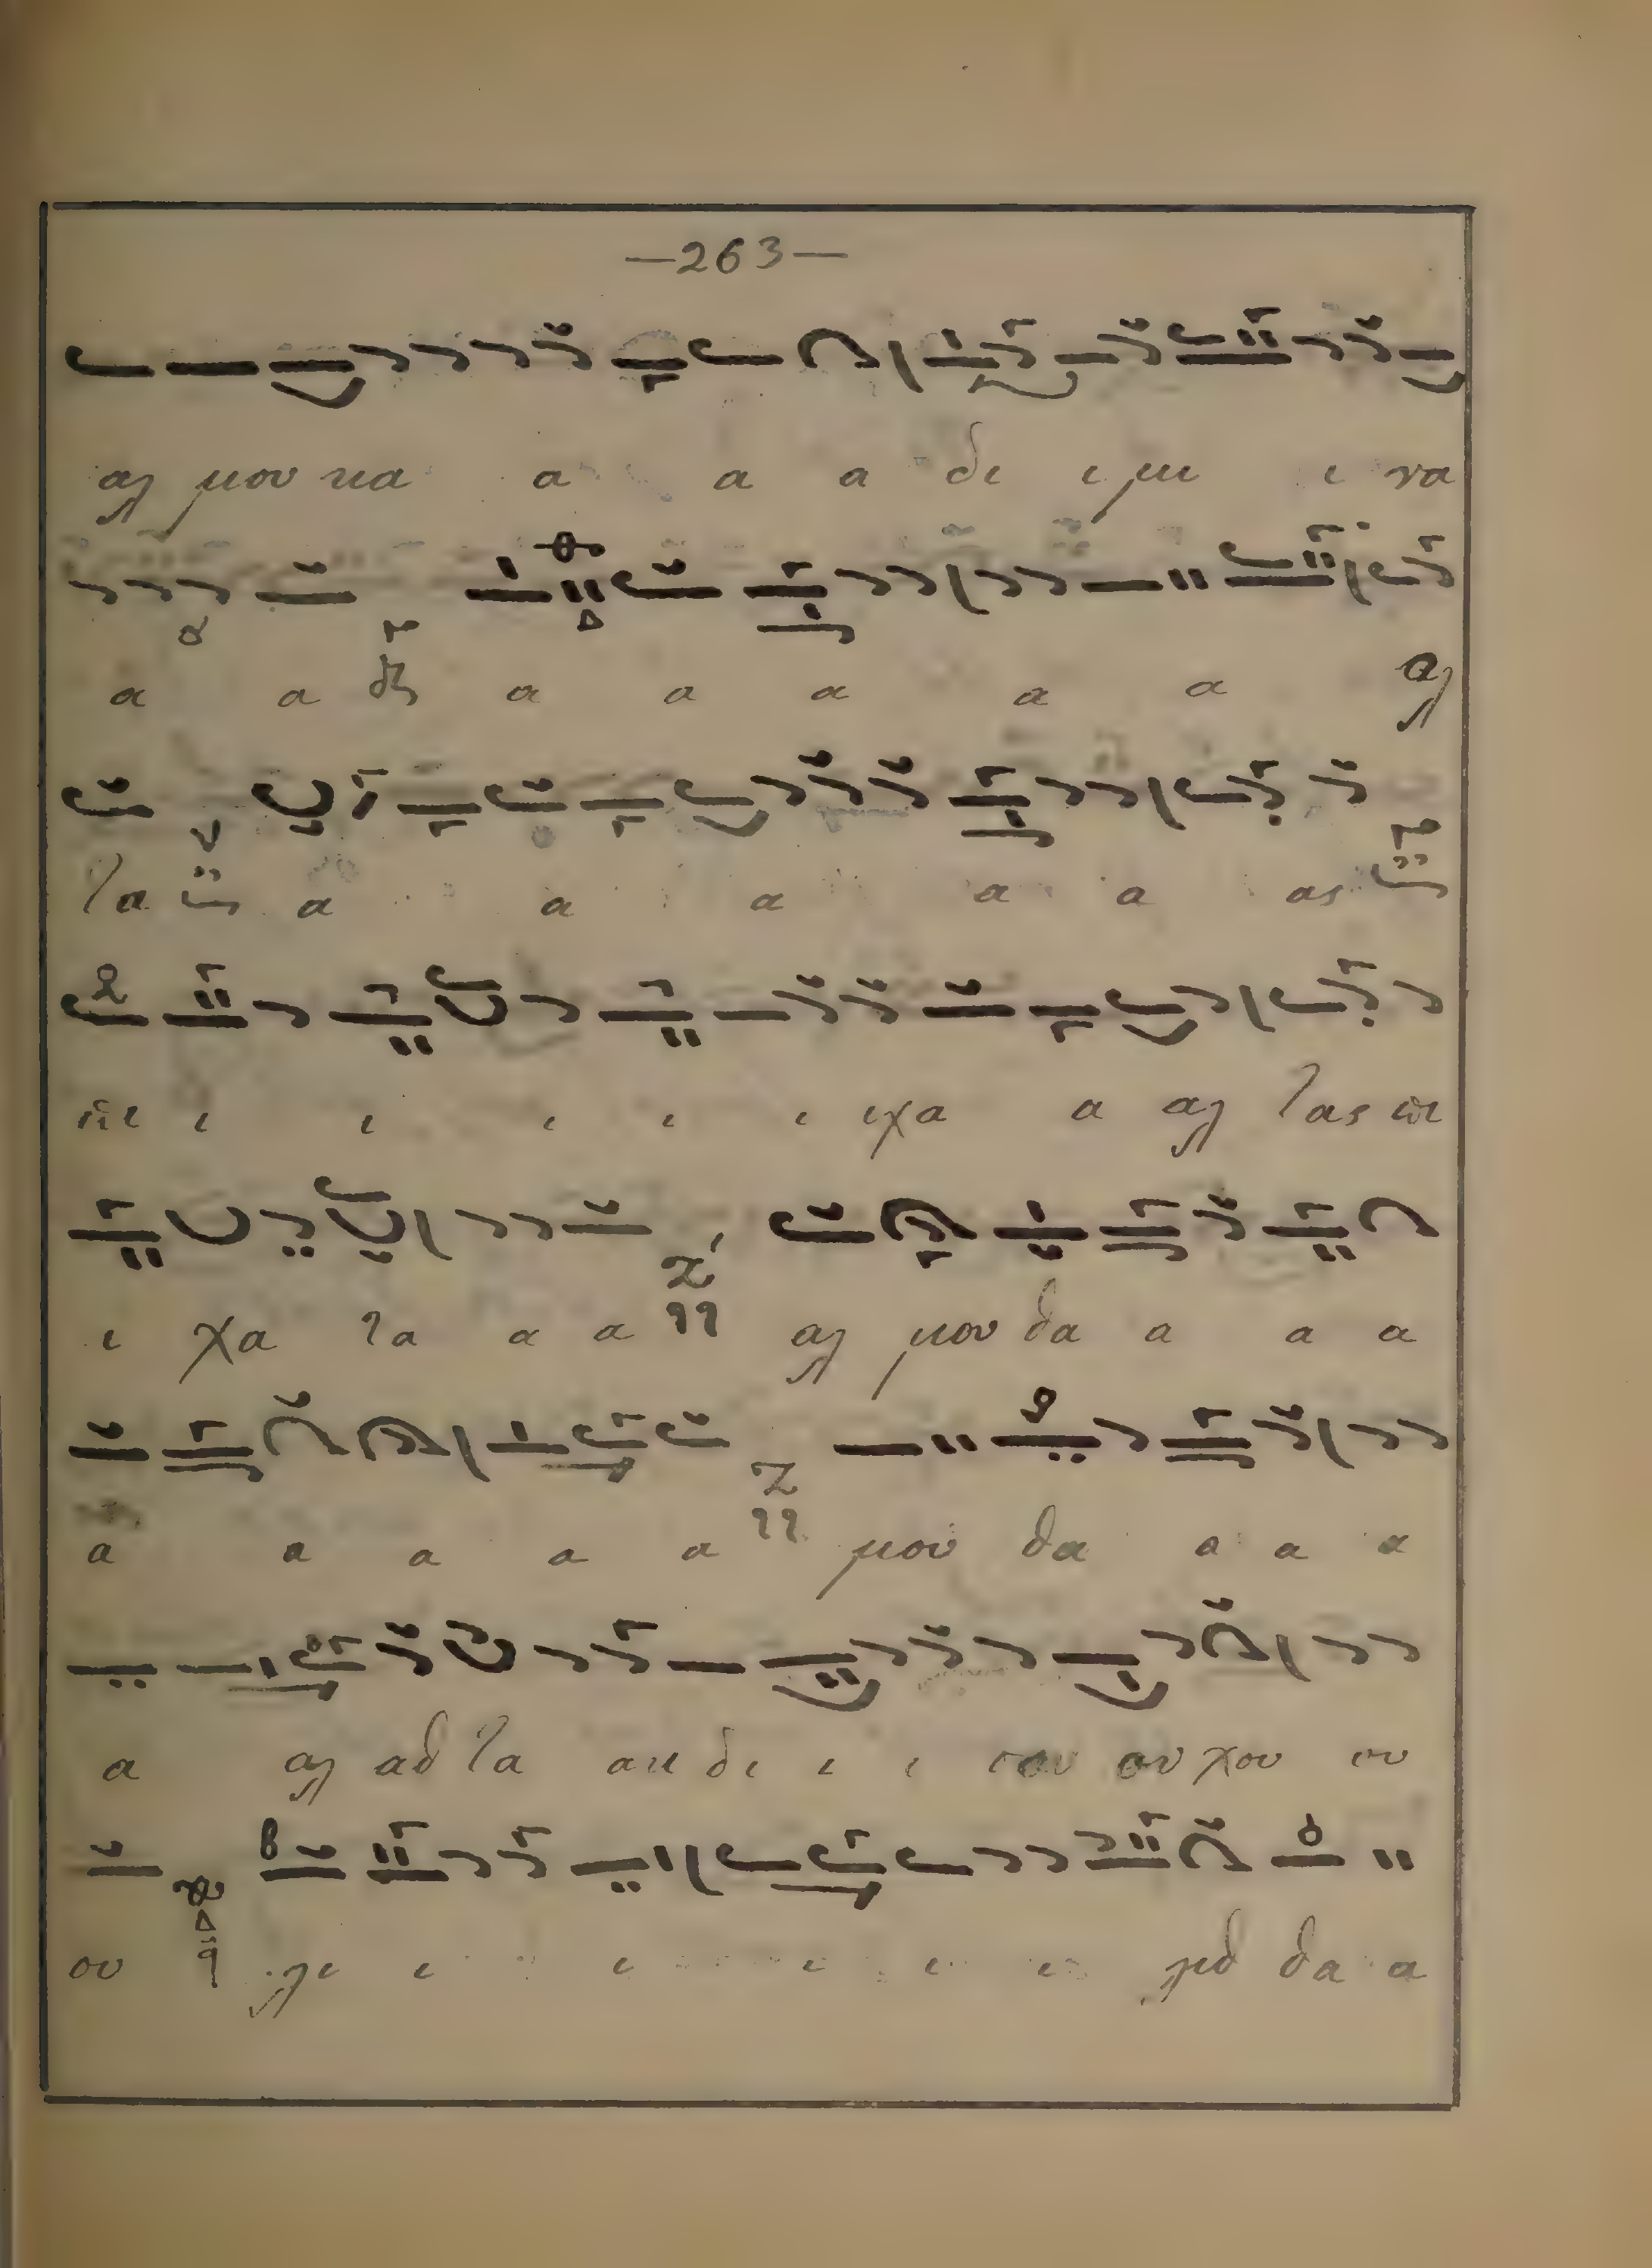 —263—
αλ μου κα α α α δι ι μι ι να
α α α α α α α αλ
τα α α α α α ας
πι ι ι ι ι ι ιχα α αλ τας πι
ι χα τα α α αλ μου δα α α α
α α α α α μου δα α α α
α αλ αδ τα ακ δι ι ι σου ου χου ου
ου λι ι ι ι ι ι λιδ δα α